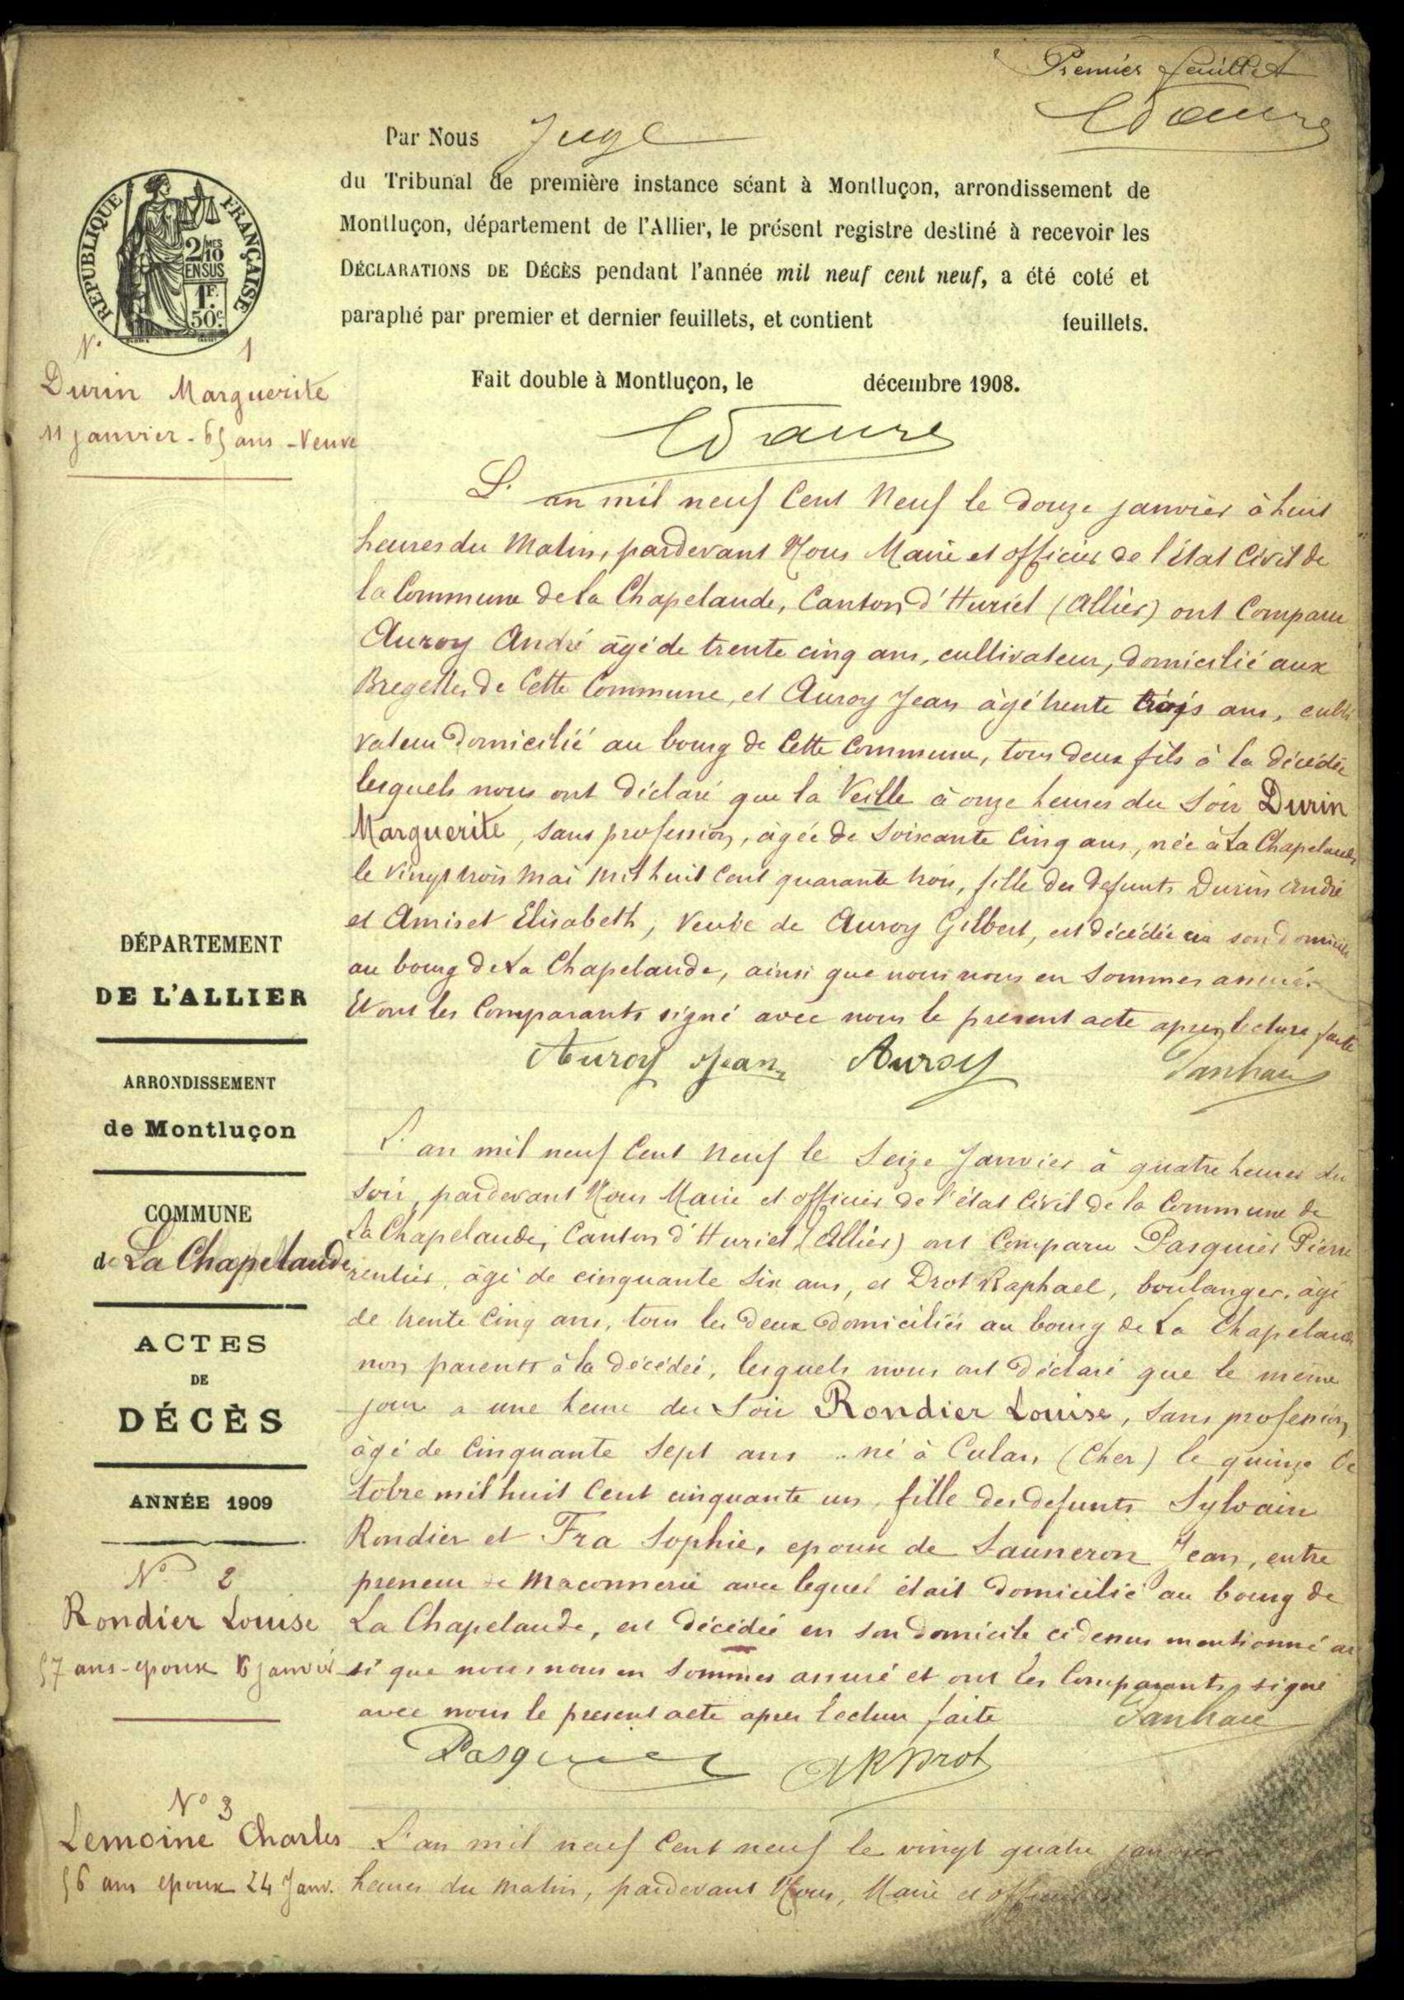 Premier feuillet
Par Nous Juge
du Tribunal de première instance séant à Montluçon, arrondissement de
Montluçon, département de l'Allier, le présent registre destiné à recevoir les
DÉCLARATIONS DE DÉCÈS pendant l'année mil neuf cent neuf, a été coté et
paraphé par premier et dernier feuillets, et contient feuillets.
Fait double à Montluçon, le décembre 1908.
RÉPUBLIQUE FRANÇAISE
2/10 MES
EN SUS
1F.
50c.
N° 1
Durin Marguerite
11 janvier - 65 ans - Veuve
L'an mil neuf Cent Neuf le douze janvier à huit
heures du Matin, pardevant Nous Maire et officier de l'état Civil de
la Commune de La Chapelaude, Canton d'Huriel (Allier) ont Comparu
Auroy André âgé de trente cinq ans, cultivateur, domicilié aux
Bregelles de Cette Commune, et Auroy Jean âgé trente trois ans, culti
vateur domicilié au bourg de Cette Commune, tous deux fils à la décédée
lesquels nous ont déclaré que la Veille à onze heures du Soir Durin
Marguerite, sans profession, âgée de Soixante Cinq ans, née à La Chapelaude
le vingt trois Mai Mil huit Cent quarante trois, fille des defunts Durin André
et Amiset Elisabeth, Veuve de Auroy Gilbert, est décédée en son domicile
au bourg de La Chapelaude, ainsi que nous nous en Sommes assuré.
Et ont les Comparants signé avec nous le présent acte après lecture faite
Auroy Jean Auroy
L'an mil neuf Cent Neuf le Seize Janvier à quatre heures du
Soir, pardevant Nous Maire et officier de l'état Civil de la Commune de
La Chapelaude, Canton d'Huriel, (Allier) ont Comparu Pasquier Pierre
rentier, âgé de cinquante Six ans, et Drot Raphael, boulanger, âgé
de trente Cinq ans, tous les deux domiciliés au bourg de La Chapelaude
non parents à la décédée, lesquels nous ont déclaré que le même
jour à une heure du Soir Rondier Louise, Sans profession,
âgé de Cinquante Sept ans né à Culan (Cher) le quinze Oc
tobre mil huit Cent cinquante un, fille des defunts Sylvain
Rondier et Fra Sophie, epouse de Sauneron Jean, entre
preneur de Maconnerie avec lequel était domicilié au bourg de
La Chapelaude, est décédée en son domicile ci dessus mentionné ain
si que nous nous en Sommes assuré et ont les Comparants signé
avec nous le présent acte après lecture faite
Pasquier Drot
DÉPARTEMENT
DE L'ALLIER
ARRONDISSEMENT
de Montluçon
COMMUNE
de La Chapelaude
ACTES
DE
DÉCÈS
ANNÉE 1909
N° 2
Rondier Louise
57 ans - epouse 16 janvier
N° 3
Lemoine Charles
56 ans epoux 24 Janv.
L'an mil neuf Cent neuf le vingt quatre janvier
heures du Matin, pardevant Nous, Maire et officier